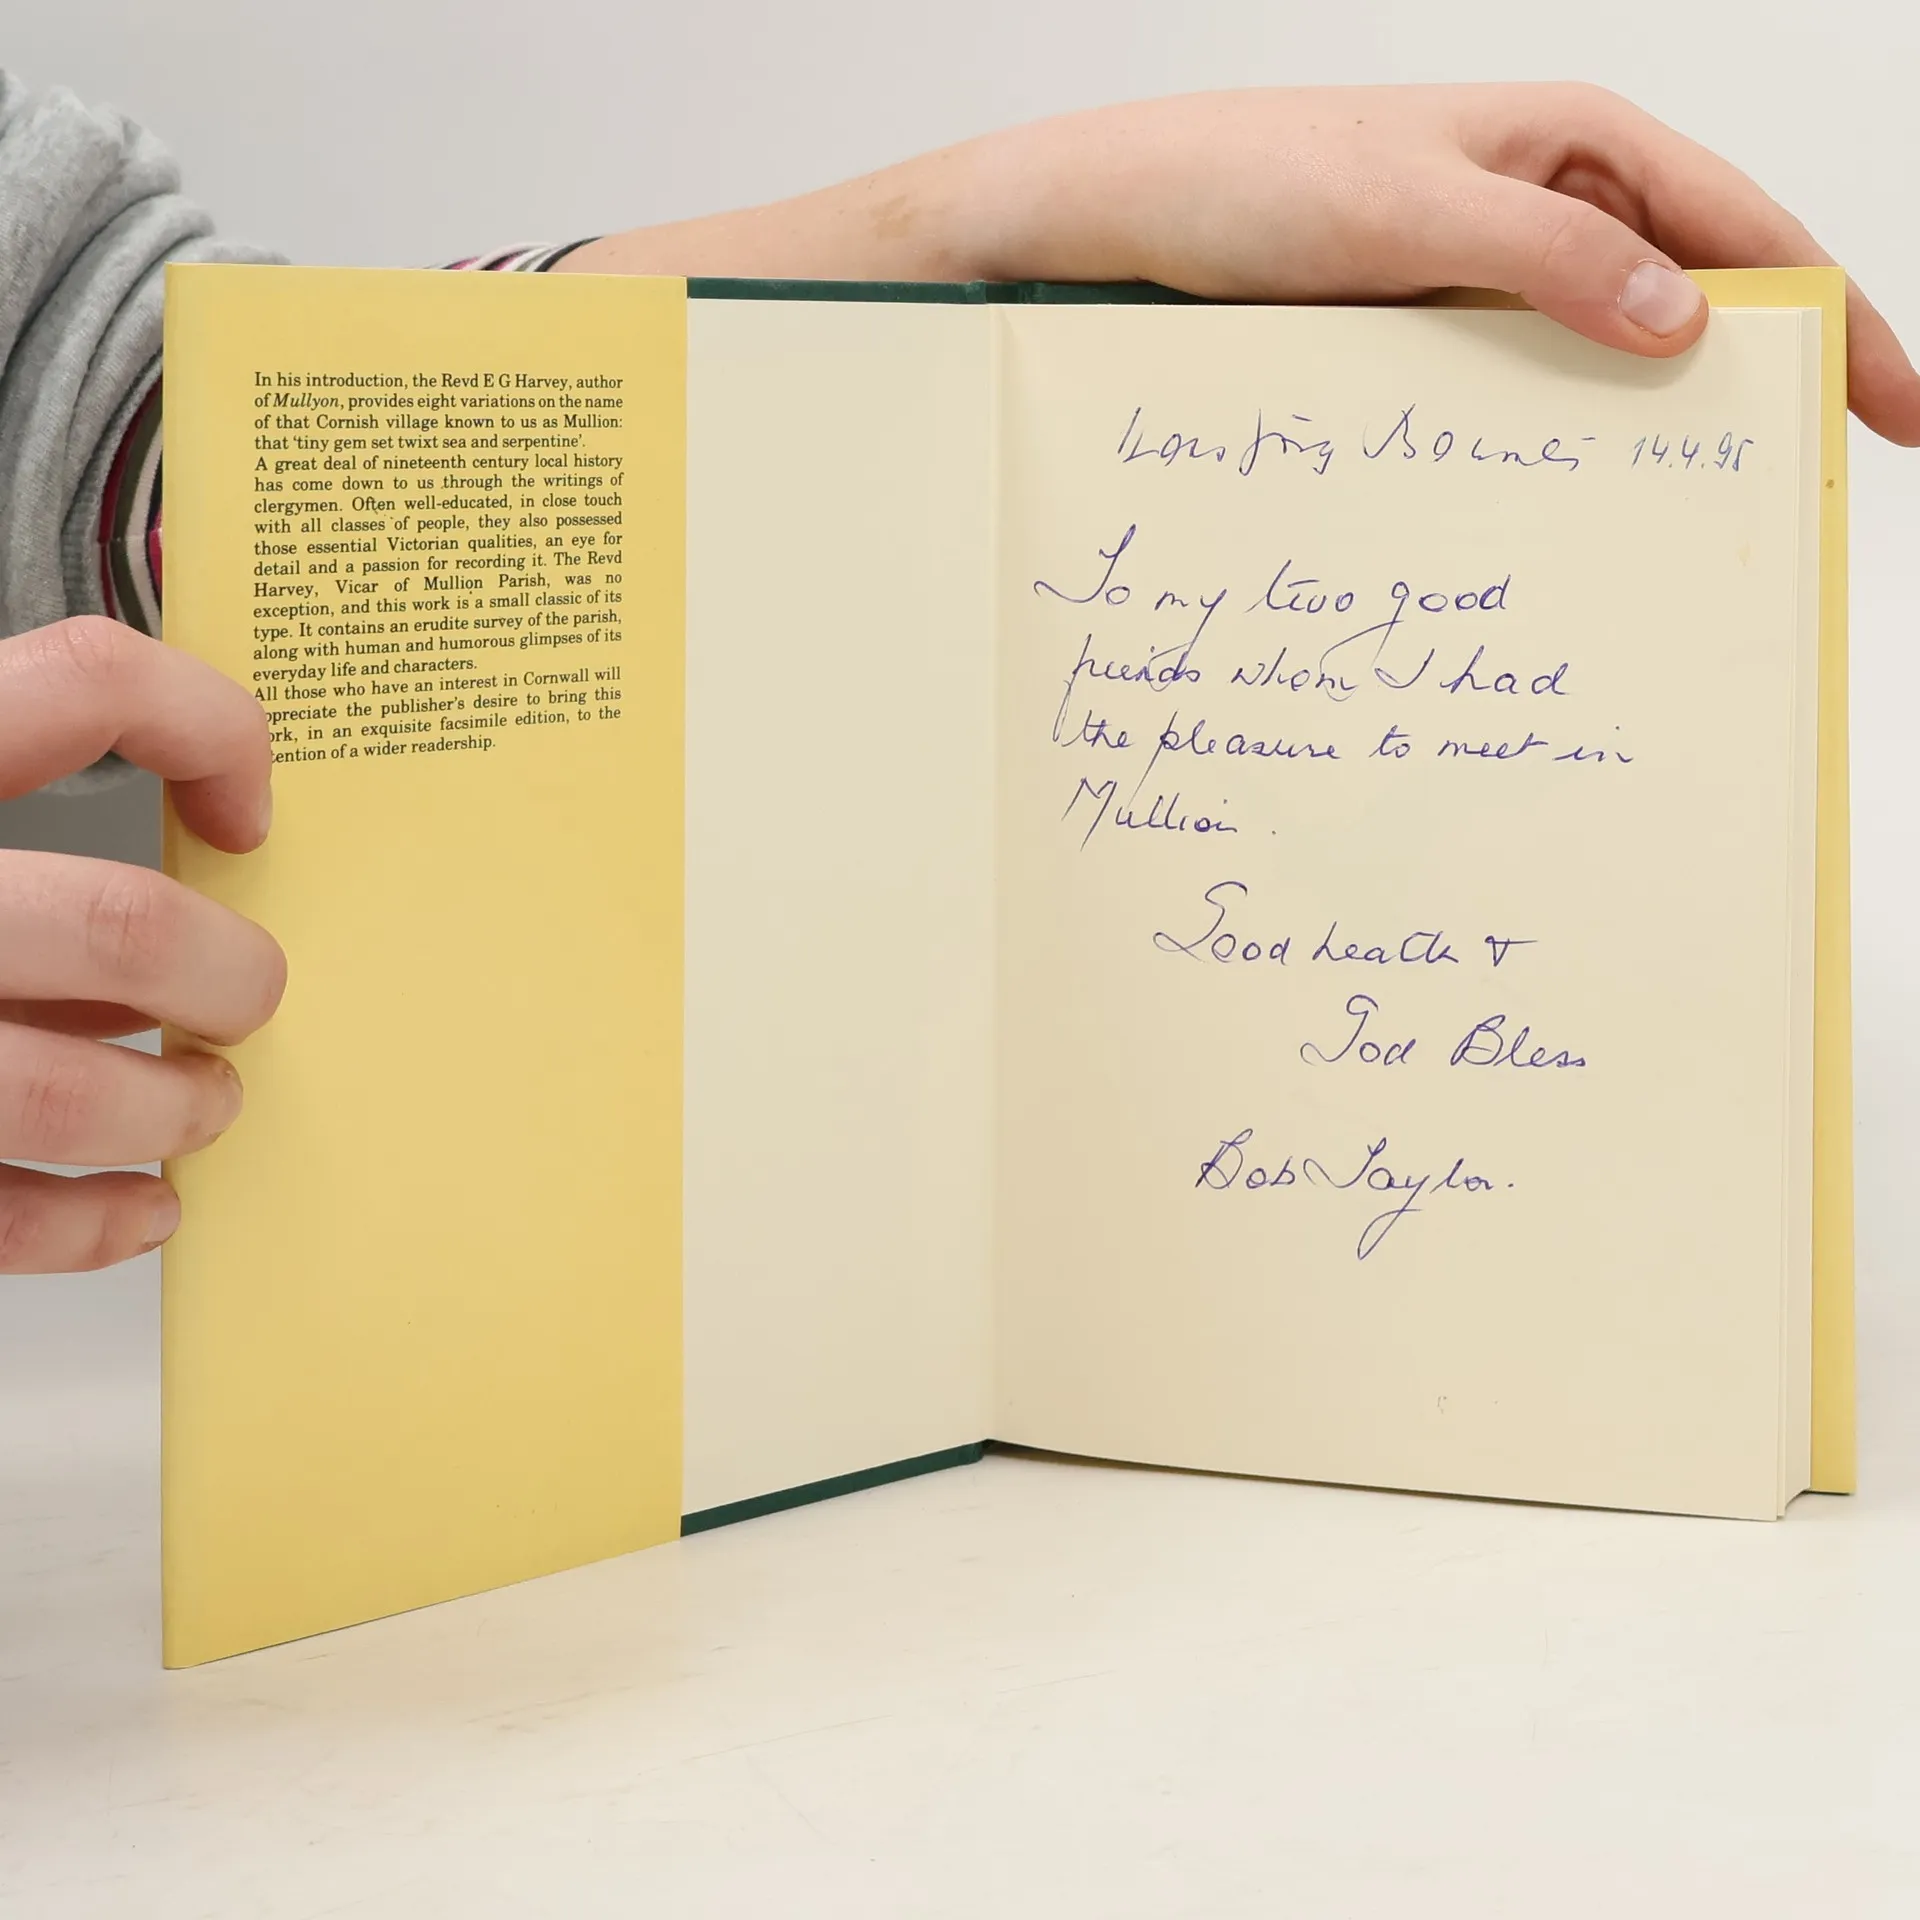 In his introduction, the Revd E G Harvey, author
of Mullyon, provides eight variations on the name
of that Cornish village known to us as Mullion:
that 'tiny gem set twixt sea and serpentine'.
A great deal of nineteenth century local history
has come down to us through the writings of
clergymen. Often well-educated, in close touch
with all classes of people, they also possessed
those essential Victorian qualities, an eye for
detail and a passion for recording it. The Revd
Harvey, Vicar of Mullion Parish, was no
exception, and this work is a small classic of its
type. It contains an erudite survey of the parish,
along with human and humorous glimpses of its
everyday life and characters.
All those who have an interest in Cornwall will
ppreciate the publisher's desire to bring this
ork, in an exquisite facsimile edition, to the
tention of a wider readership.
14.4.95
To my two good
freinds whom I had
the pleasure to meet in
Mullion.
Good health &
God Bless
Bob Taylor.